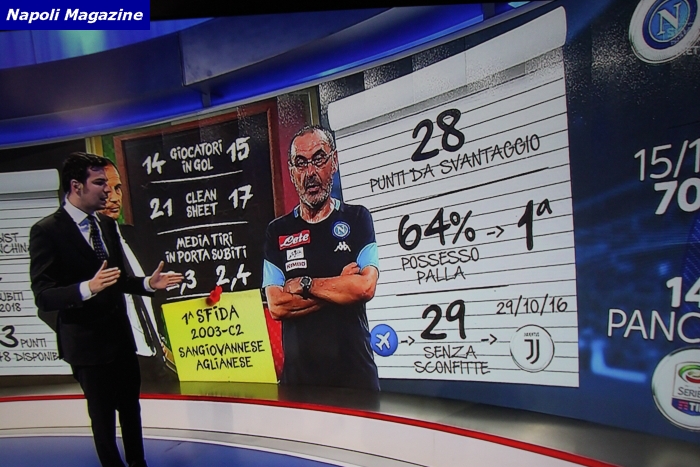 Napoli Magazine
14 GIOCATORI IN GOL 15
21 CLEAN SHEET 17
MEDIA TIRI
IN PORTA SUBITI
,3 2,4
1ª SFIDA
2003-C2
SANGIOVANNESE
AGLIANESE
Lete
KIMBO
N
28
PUNTI DA SVANTAGGIO
64% → 1ª
POSSESSO
PALLA
→ 29 →
SENZA
SCONFITTE
29/10/16
JUVENTUS
2018
3 PUNTI
+8 DISPONIB
N
15/1
70
14
PANC
SERIE
TIM